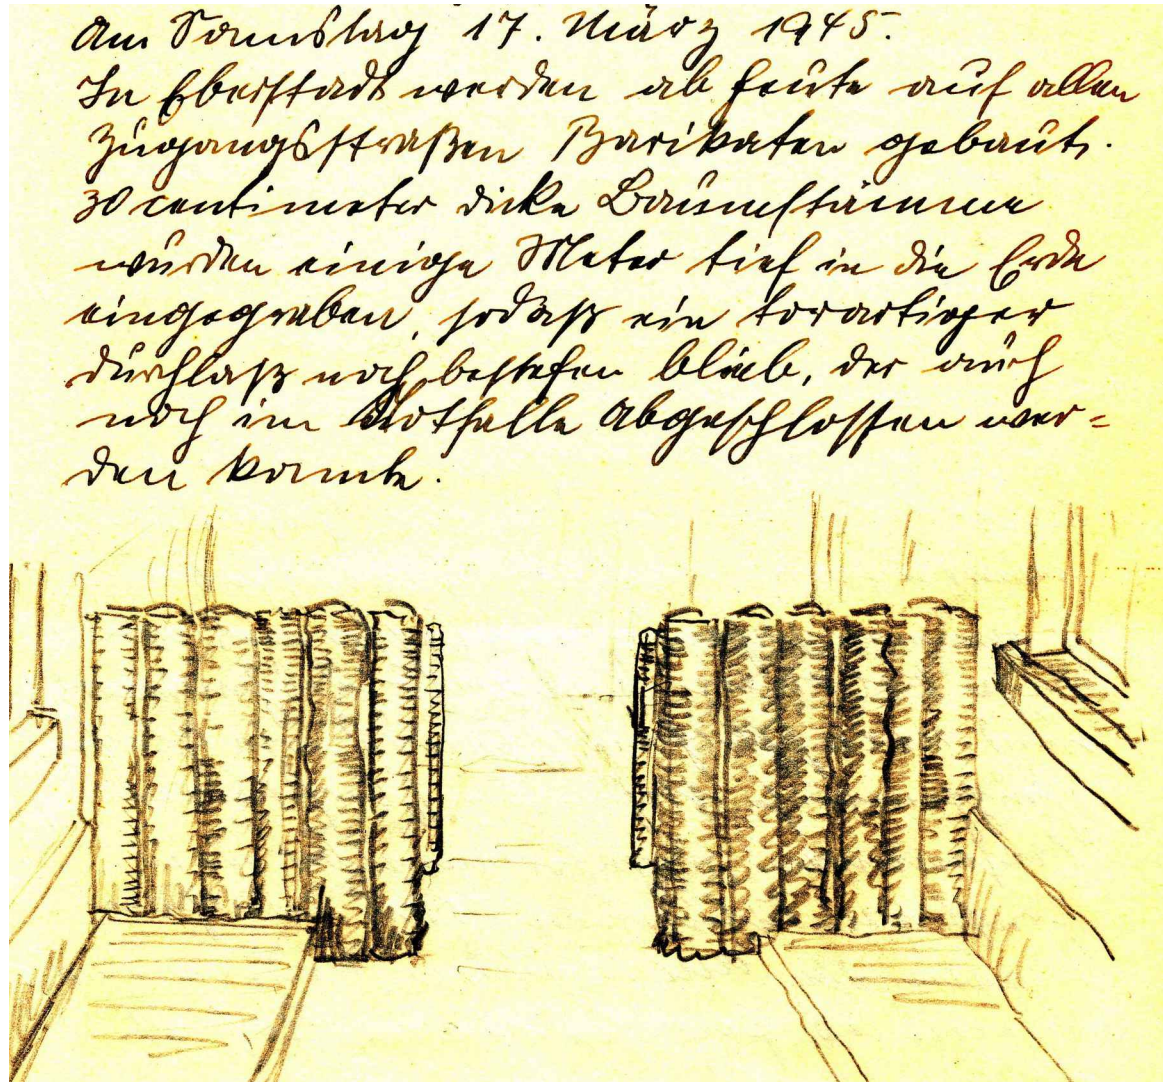 Am Samstag 17. März 1945.
In Eberstadt werden ab heute auf allen
Zugangsstraßen Barikaten gebaut.
30 centimeter dicke Baumstämme
wurden einige Meter tief in die Erde
eingegraben, sodaß ein torartiger
durchlaß noch bestehen blieb, der auch
noch im Notfalle abgeschlossen wer=
den konnte.